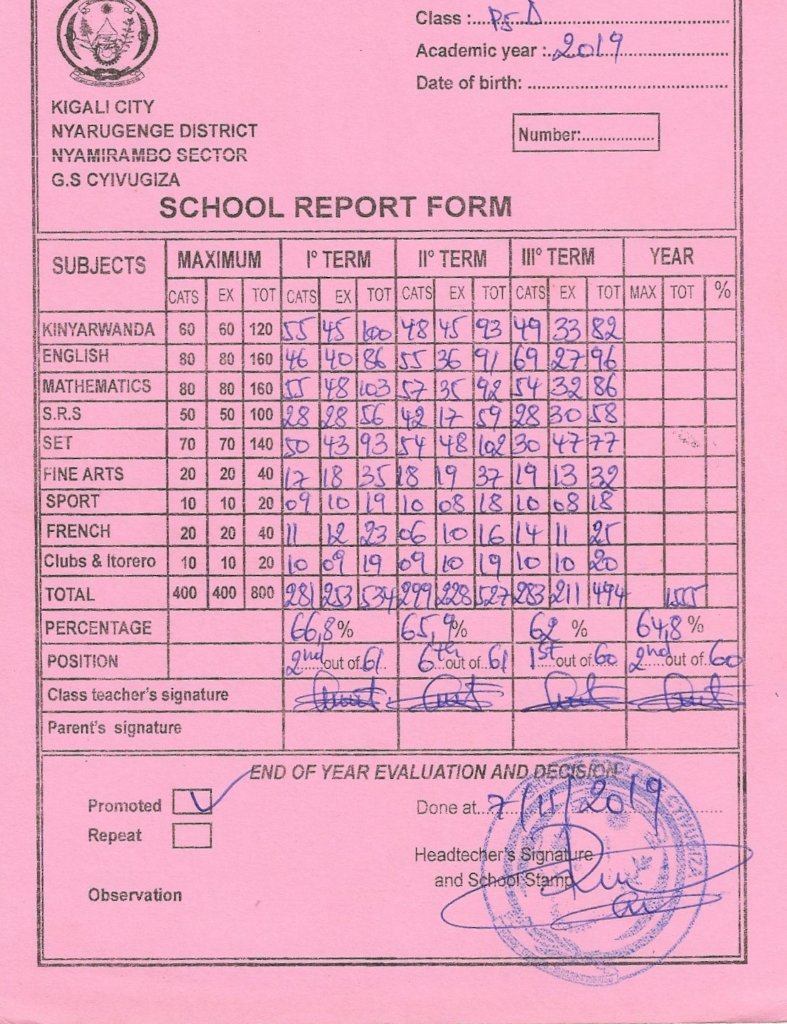 Class : P5 D
Academic year : 2019
Date of birth:
KIGALI CITY
NYARUGENGE DISTRICT
Number:
NYAMIRAMBO SECTOR
G.S CYIVUGIZA
SCHOOL REPORT FORM
SUBJECTS MAXIMUM I° TERM II° TERM III° TERM YEAR
CATS EX TOT CATS EX TOT CATS EX TOT CATS EX TOT MAX TOT %
KINYARWANDA 60 60 120 55 45 100 48 45 93 49 33 82
ENGLISH 80 80 160 46 40 86 55 36 91 69 27 96
MATHEMATICS 80 80 160 55 48 103 57 35 92 54 32 86
S.R.S 50 50 100 28 28 56 42 17 59 28 30 58
SET 70 70 140 50 43 93 54 48 102 30 47 77
FINE ARTS 20 20 40 17 18 35 18 19 37 19 13 32
SPORT 10 10 20 09 10 19 10 08 18 10 08 18
FRENCH 20 20 40 11 12 23 06 10 16 14 11 25
Clubs & Itorero 10 10 20 10 09 19 09 10 19 10 10 20
TOTAL 400 400 800 281 253 534 299 228 527 283 211 494 1555
PERCENTAGE 66,8% 65,9% 62 % 64,8%
POSITION 2nd out of 61 6th out of 61 1st out of 60 2nd out of 60
Class teacher's signature
Parent's signature
END OF YEAR EVALUATION AND DECISION
Promoted
Done at 7/11/2019
Repeat
Headtecher's Signature
and School Stamp
Observation
CYIVUGIZA